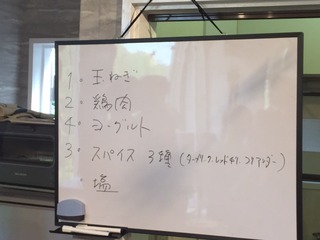 1・玉ねぎ
2・鶏肉
4・ヨーグルト
3・スパイス 3種(ターメリック.レッドチリ.コリアンダー)
・塩